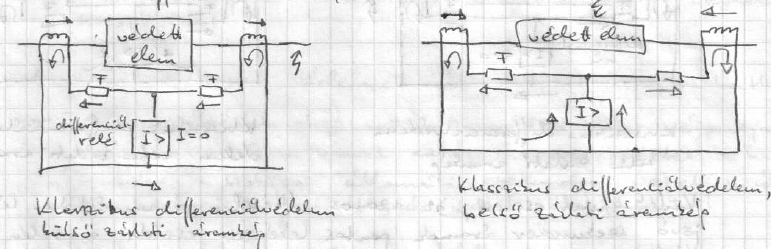 védett
elem
F
F
differenciál
relé
I>
I=0
Klasszikus differenciálvédelem
külső zárlati áramkép
védett elem
F
I>
Klasszikus differenciálvédelem,
belső zárlati áramkép